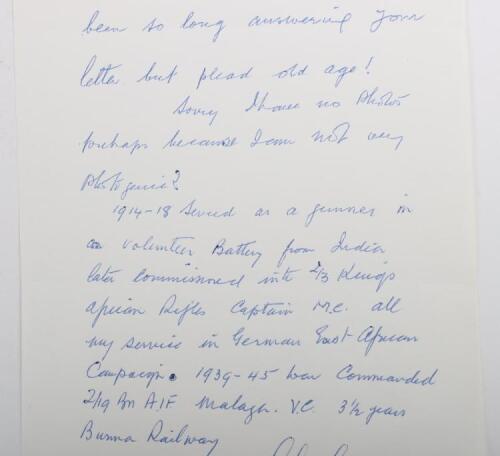 been so long answering your
letter but plead old age!
Sorry I have no Photos
perhaps because I am not very
Photogenic?
1914-18 Served as a gunner in
a volunteer Battery from India
later commissioned into 2/3 Kings
African Rifles Captain M.C. all
my service in German East African
Campaign. 1939-45 war Commanded
2/19 Bn A.I.F Malaya. V.C. 3½ years
Burma Railway